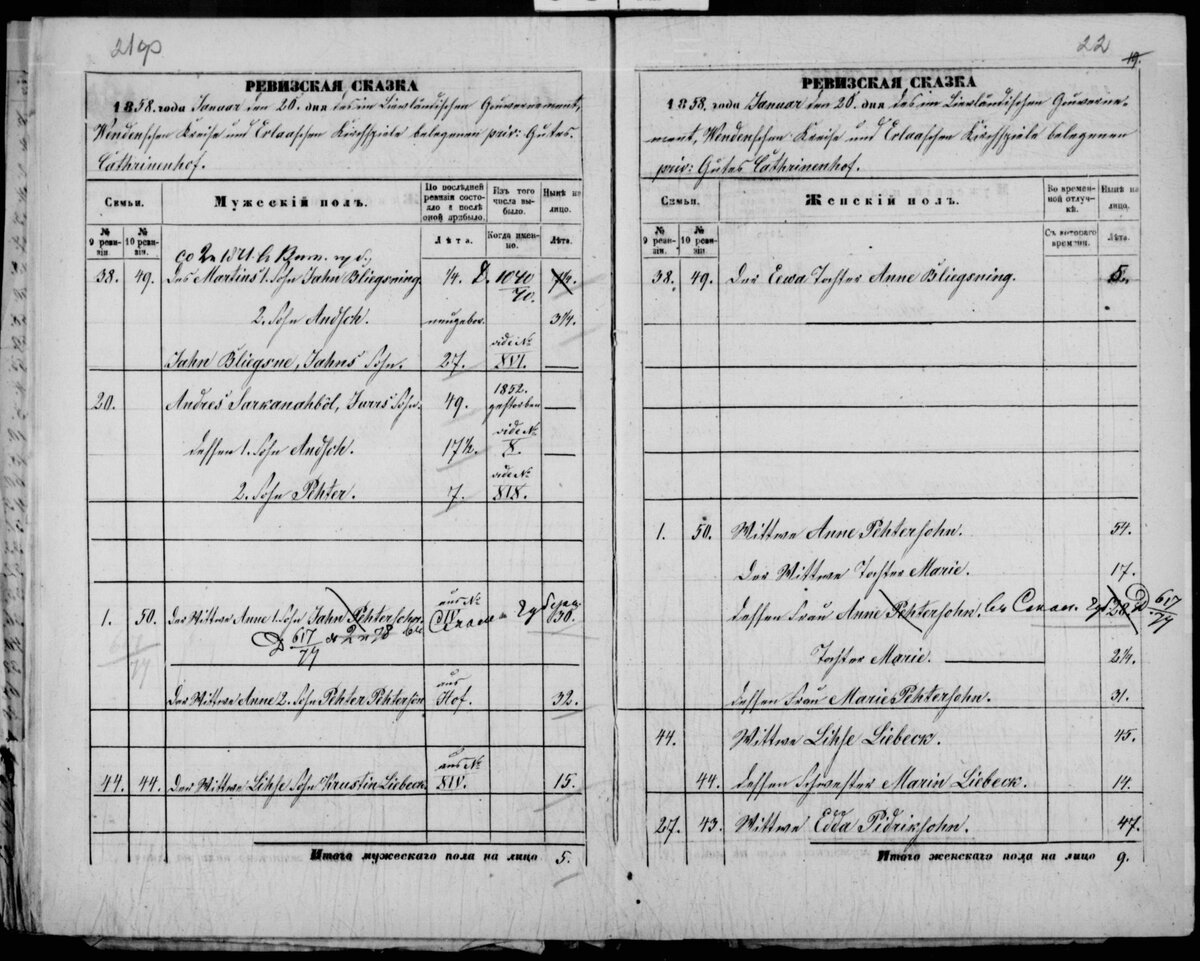 21 φ
РЕВИЗСКАЯ СКАЗКА
1858. года Januar den 20. дня des im Lievländischen Gouvernement,
Wendenschen Kreise und Erlaaschen Kirchspiele belegenen priv: Gutes
Cathrinenhof.
Семьи.
Мужескій полъ.
По последней ревизіи состояло и после оной прибыло.
Изъ того числа выбыло.
Ныне на лицо.
№ 9 ревизіи.
№ 10 ревизіи.
Лѣта.
Когда именно.
Лѣта.
38. 49. Des Martins 1. Sohn Jahn Bliegsning. 1/4. D. 1040/70.
2. Sohn Andsch. neugebor. 3 1/2.
Jahn Bliegsne, Jahns Sohn. 27. vide № XVI.
20. Andres Sarkanahböl, Jurris Sohn. 49. 1852. gestorben
dessen 1. Sohn Andsch. 17 1/2. vide № X.
2. Sohn Pehter. 7. vide № XIX.
1. 50. Der Wittwe Anne 1. Sohn Jahn Pehtersohn. aus № 30.
D 617/77
Der Wittwe Anne 2. Sohn Pehter Pehtersohn aus Hof. 32.
44. 44. Der Wittwe Lihse Sohn Krustin Liebeck. aus № XIV. 15.
Итого мужескаго пола на лицо 5.
22
19.
РЕВИЗСКАЯ СКАЗКА
1858. года Januar den 20. дня des im Lievländischen Gouverne-
ment, Wendenschen Kreise und Erlaaschen Kirchspiele belegenen
priv: Gutes Cathrinenhof.
Семьи.
Женскій полъ.
Во временной отлучкѣ.
Ныне на лицо.
№ 9 ревизіи.
№ 10 ревизіи.
Съ котораго времени.
Лѣта.
38. 49. Der Eewa Tochter Anne Bliegsning. 5.
1. 50. Wittwe Anne Pehtersohn. 54.
Der Wittwe Tochter Marie. 17.
dessen Frau Anne Pehtersohn. 28. D 617/77
Tochter Marie. 2 1/2.
dessen Frau Marie Pehtersohn. 31.
44. Wittwe Lihse Liebeck. 45.
44. dessen Schwester Marin Liebeck. 14.
27. 43. Wittwe Edda Pidriksohn. 47.
Итого женскаго пола на лицо 9.